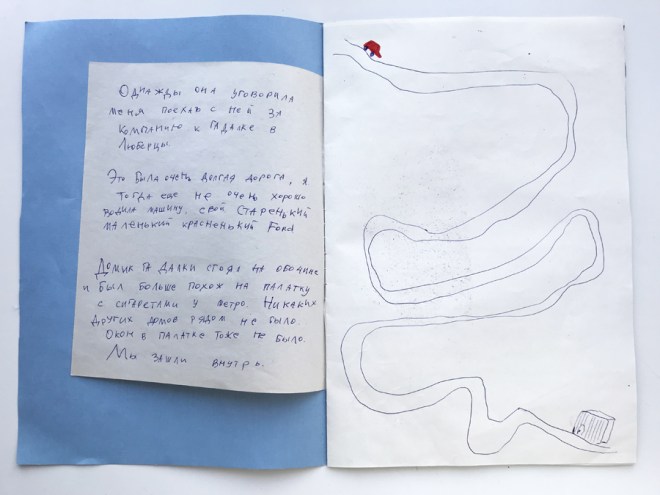 Однажды она уговорила
меня поехать с ней за
компанию к гадалке в
Люберцы
Это была очень долгая дорога, я
тогда еще не очень хорошо
водила машину, свой старенький
маленький красненький Ford
Домик гадалки стоял на обочине
и был больше похож на палатку
с сигаретами у метро. Никаких
других домов рядом не было.
Окон в палатке тоже не было.
Мы зашли внутрь.